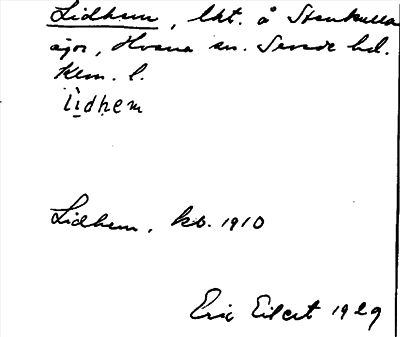 Lidhem, lht. å Stenkulla
ägor, Hvena sn. Sevede hd.
Klm. l.
lìdhem
Lidhem, kb. 1910
Eric Eilert 1929